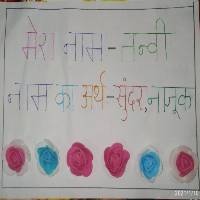 मेरा नाम - तन्वी
नाम का अर्थ - सुंदर, नाजूक